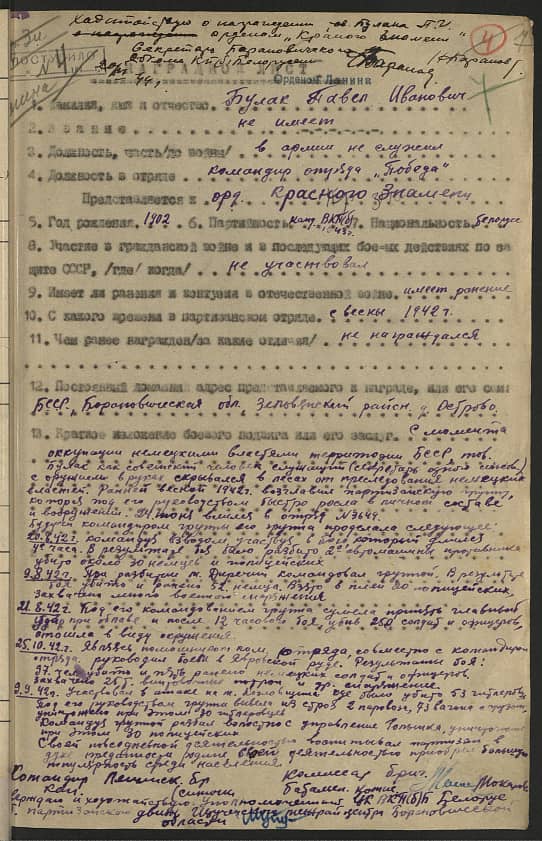 Ходатайствую о награждении тов Булака П.И.
орденом „Красного знамени"
Секретарь Барановичского
обкома КП/б/ Белоруссии
4
НАГРАДНОЙ ЛИСТ
Орденом Ленина
1. Фамилия, имя и отчество. Булак Павел Иванович
2. Звание не имеет
3. Должность, часть/до войны/ в армии не служил
4. Должность в отряде командир отряда „Победа"
Представляется к орд. Красного Знамени
5. Год рождения. 1902 6. Партийность. канд. ВКП/б/ 7. Национальность. белорус
8. Участие в гражданской войне и в последующих боевых действиях по за
щите СССР, /где/когда/ не участвовал
9. Имеет ли ранения и контузии в отечественной войне. имеет ранение
10. С какого времени в партизанском отряде. с весны 1942 г.
11. Чем ранее награжден/за какие отличия/ не награждался
12. Постоянный домашний адрес представляемого к награде, или его сем
БССР, Барановическая обл. Зельвянский район. д. Острово.
13. Краткое изложение боевого подвига или его заслуг. С момента
оккупации немецкими властями территории БССР тов.
Булак как советский человек служащий (секретарь
с оружием в руках скрывался в лесах от преследования немецких
властей. Ранней весной 1942 г. возглавил партизанскую группу,
которая под его руководством быстро росла в личном составе
и вооружении. 24 июня влился в отряд №
Будучи командиром группы его группа проделала следующее:
20.8.42 г. командуя взводом участвуя в бою который длился
4 часа. В результате боя было разбито 2 автомашины противника
убито около 30 немцев и полицейских
9.8.42 г. При разбитии м. Деречин командовал группой. В результате
боя убито и ранено 32 немца. Взято в плен 20 полицейских,
захвачено много военного снаряжения
21.8.42 г. Под его командованием группа сумела принять главный
удар при облаве и после 12 часового боя, убив 250 солдат и офицеров,
отошла в виду окружения.
25.10.42 г. Являясь помощником ком. отряда, совместно с командиром
отряда руководил боем в Яворской руде. Результаты боя:
37 чел. убито и пять ранено немецких солдат и офицеров.
Захвачено 28 винтовок и др. снаряжение.
9.9.42 г. Участвовал в атаке на где было убито 53 гитлеровца
Под его руководством группа вывела из строя 2 паровоза, 43 вагона с грузом,
уничтожено при этом 30 гитлеровцев
Командуя группой разбил волостное управление уничтожив
при этом 30 полицейских
Своей повседневной деятельностью воспитывал партизан в
духе преданности родине своей деятельностью приобрел большую
популярность среди населения.
Командир Ленинск. бр Комиссар бриг.
Батальон. комис. Макаров
Утверждаю и ходатайствую Уполномоченный ЦК ВКП/б/ Белорус
партизанского движ Барановичской
области